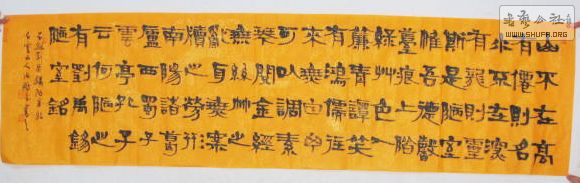 山不在高
有僊則名
水不在深
有龍則靈
斯是陋室
惟吾德馨
苔痕上階
綠艸色入
簾青譚笑
有鴻儒往
來無白丁
可以調素
琴閱金經
無絲竹之
亂耳無案
牘之勞形
南陽諸葛
廬西蜀子
雲亭孔子
云何陋之
有劉禹錫
陋室銘